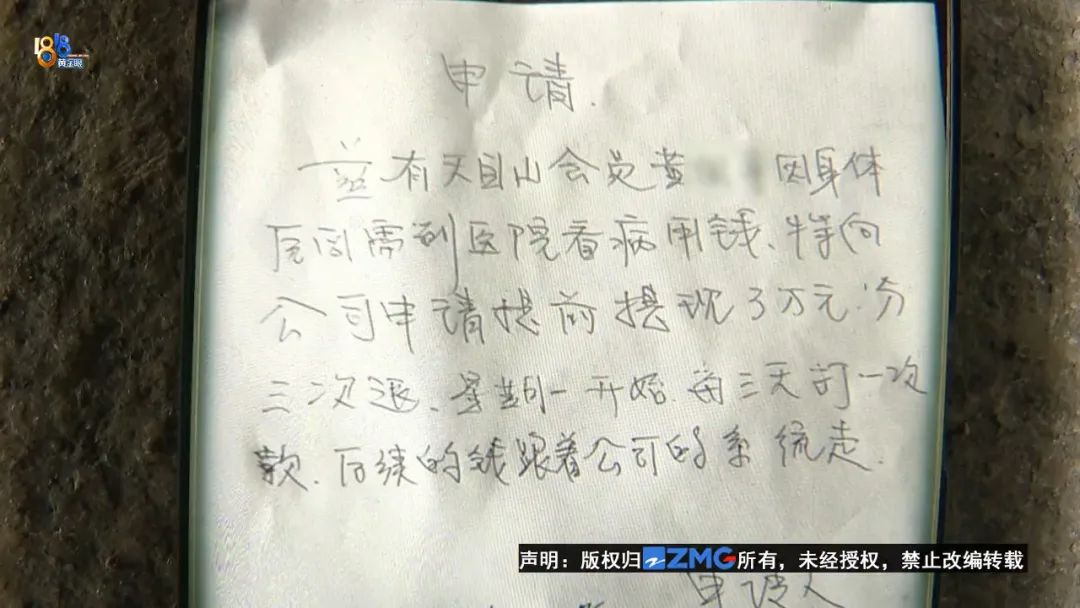 1818
黄金眼
申请.
兹有天目山会员黄 因身体
原因需到医院看病用钱、特向
公司申请提前提现3万元.分
三次退、星期一开始.每三天打一次
款.后续的钱跟着公司的系统走.
声明：版权归ZMG所有，未经授权，禁止改编转载
申请人